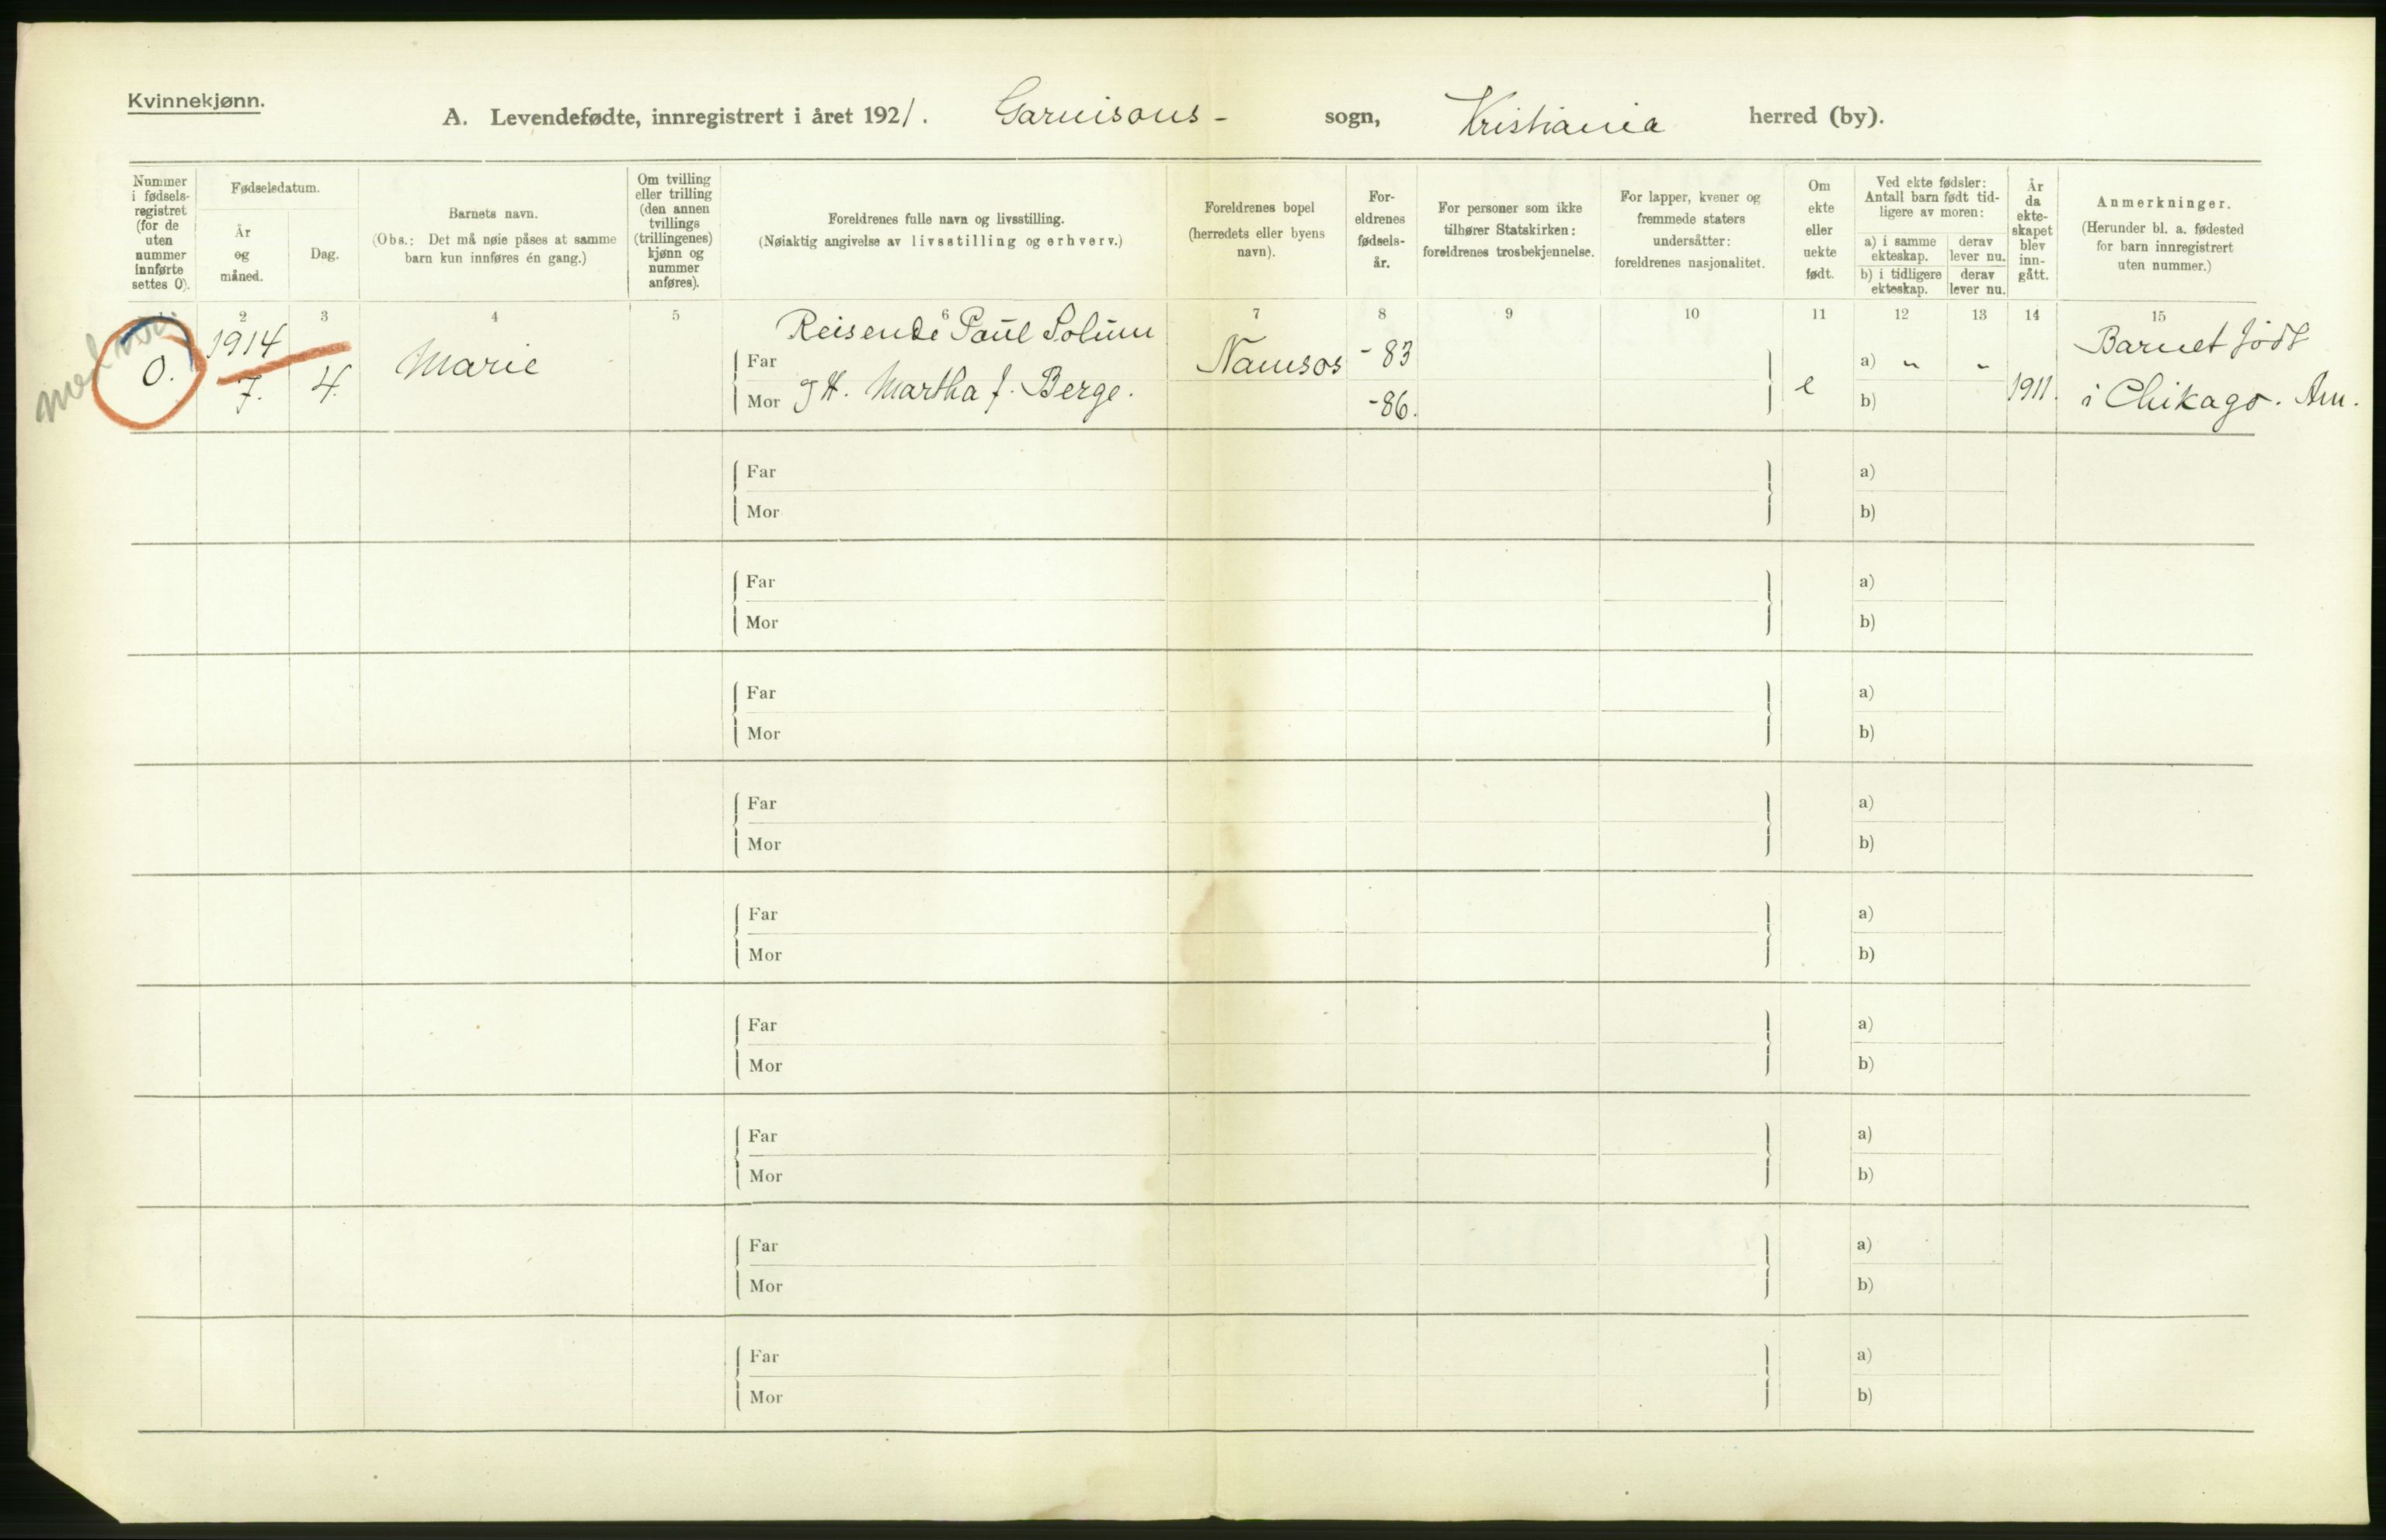 Kvinnekjønn.
A. Levendefødte, innregistrert i året 1921. Garnisons- sogn, Kristiania herred (by).
Nummer
i fødsels-
registret
(for de
uten
nummer
innførte
settes 0).
Fødselsdatum.
År
og
måned.
Dag.
Barnets navn.
(Obs.: Det må nøie påses at samme
barn kun innføres én gang.)
Om tvilling
eller trilling
(den annen
tvillings
(trillingenes)
kjønn og
nummer
anføres).
Foreldrenes fulle navn og livsstilling.
(Nøiaktig angivelse av livsstilling og erhverv.)
Foreldrenes bopel
(herredets eller byens
navn).
For-
eldrenes
fødsels-
år.
For personer som ikke
tilhører Statskirken:
foreldrenes trosbekjennelse.
For lapper, kvener og
fremmede staters
undersåtter:
foreldrenes nasjonalitet.
Om
ekte
eller
uekte
født.
Ved ekte fødsler:
Antall barn født tid-
ligere av moren:
a) i samme
ekteskap.
derav
lever nu.
b) i tidligere
ekteskap.
derav
lever nu.
År
da
ekte-
skapet
blev
inn-
gått.
Anmerkninger.
(Herunder bl. a. fødested
for barn innregistrert
uten nummer.)
1 2 3 4 5 6 7 8 9 10 11 12 13 14 15
0.
1914
7. 4.
Marie
Reisende Paul Solum
Far
Mor g H. Martha f. Berge.
Namsos
- 83
- 86.
e
a) " "
b)
1911.
Barnet født
i Chikago. Am.
Far a)
Mor b)
Far a)
Mor b)
Far a)
Mor b)
Far a)
Mor b)
Far a)
Mor b)
Far a)
Mor b)
Far a)
Mor b)
Far a)
Mor b)
Far a)
Mor b)